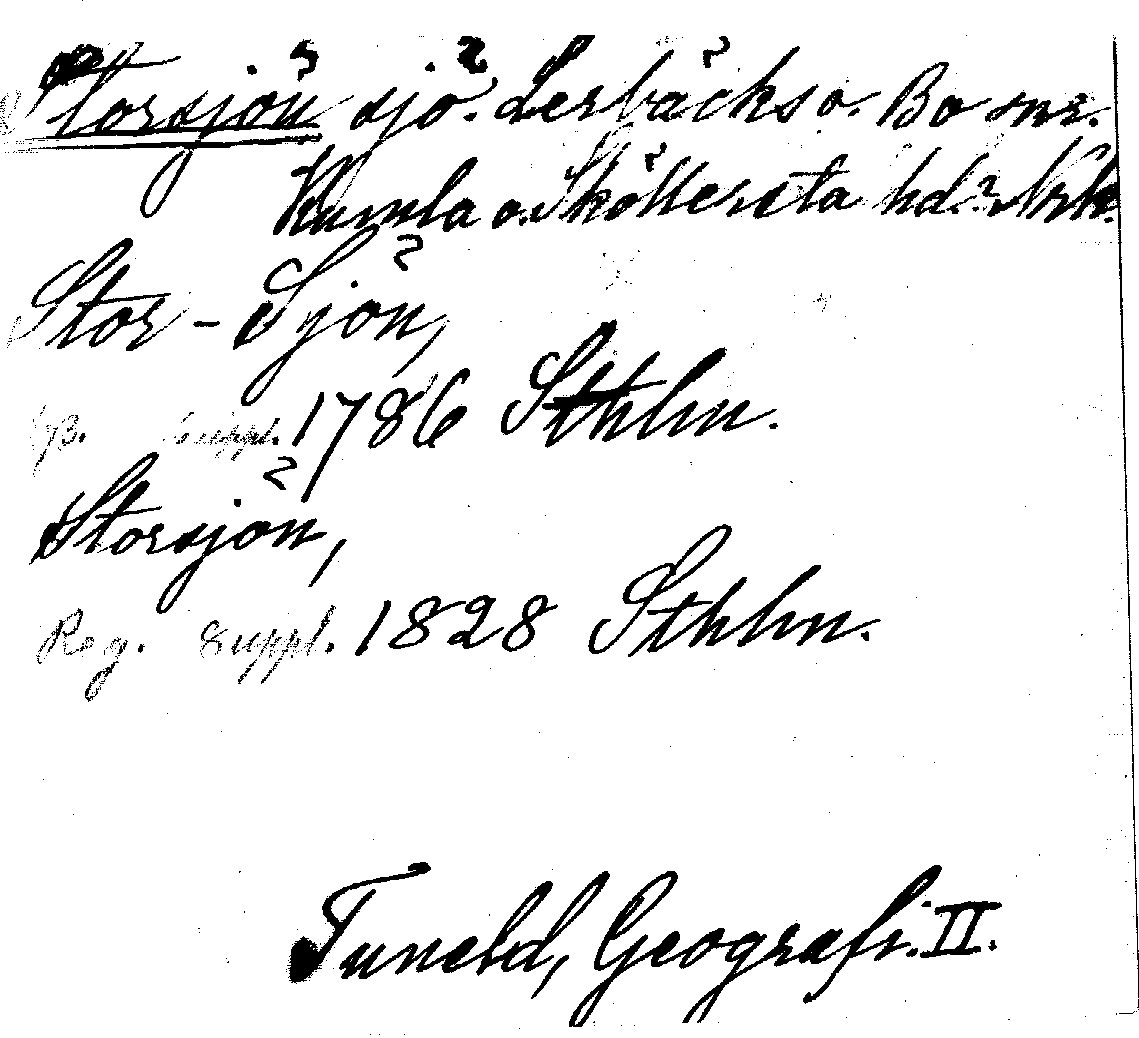 Storsjön sjö. Lerbäcks o. Bo snr.
Kumla o. Sköllersta hd. Nrk.
Stor-Sjön,
Suppl. 1786 Sthlm.
Storsjön,
Reg. Suppl. 1828 Sthlm.
Tuneld, Geografi. II.